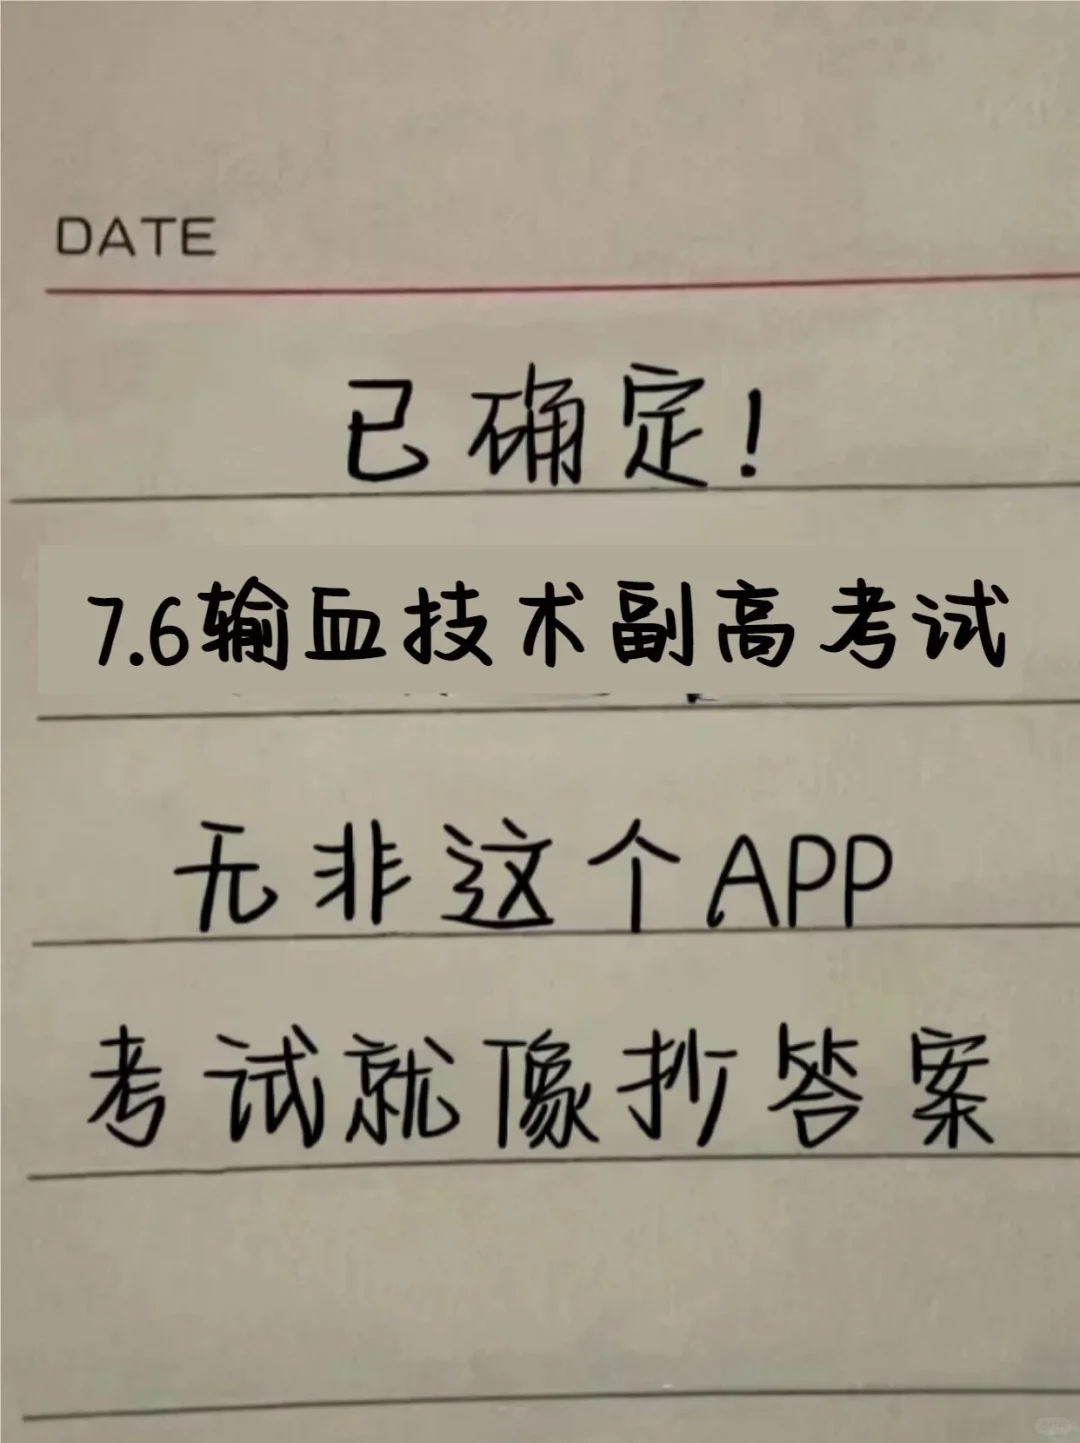 DATE
已确定!
7.6输血技术副高考试
无非这个APP
考试就像抄答案